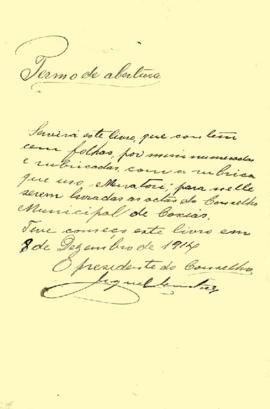 Termo de abertura
Servirá este livro, que contem
cem folhas, por mim numeradas
e rubricadas, com a rubrica
que uso, para nelle
serem lavradas as actas do Conselho
Municipal de Caxias.
Teve começo este livro em
8 de Dezembro de 1914
O presidente do Conselho,
Miguel